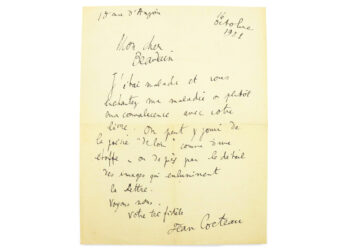 10 rue d'Anjou
Octobre
Mon cher
J'étais malade et vous
enchantez ma maladie ou plutôt
ma convalescence avec votre
livre. On peut y jouir de
la poésie "de loin" comme d'une
étoffe ou de près par le détail
des images qui enluminent
la lettre.
Voyons nous.
Votre très fidèle
Jean Cocteau